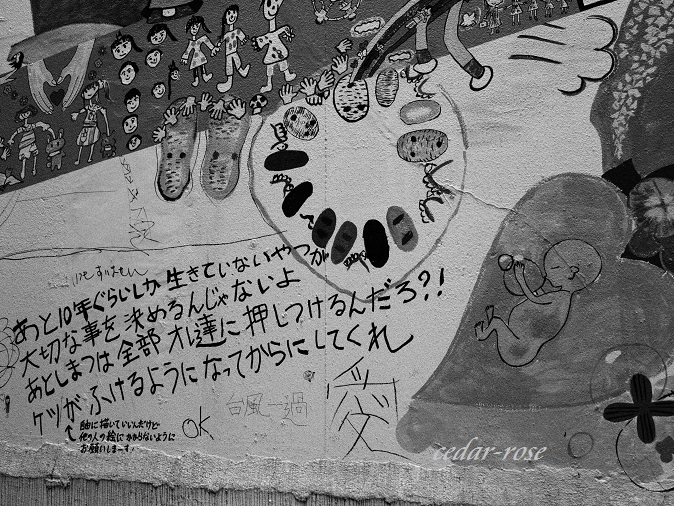 いつもすいません
あと10年ぐらいしか生きていないやつが
大切な事を決めるんじゃないよ
あとしまつは全部オレ達に押しつけるんだろ?!
ケツがふけるようになってからにしてくれ
↑自由に描いていいんだけど
他の人の絵にかからないように
お願いしまーす!
OK
台風一過
愛
cedar-rose